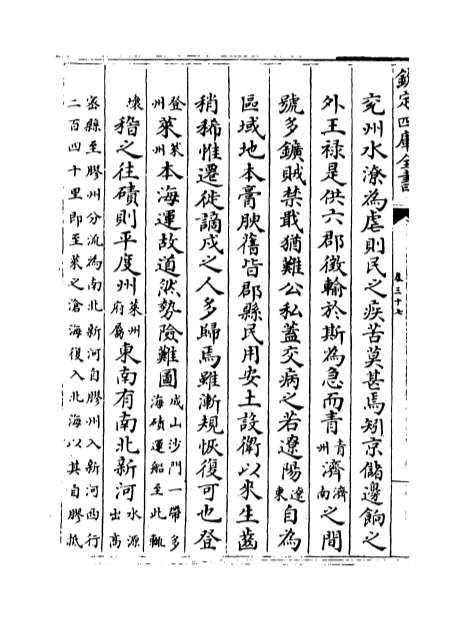 欽定四庫全書
卷三十七
兖州水潦為虐則民之疾苦莫甚焉矧京儲邊餉之
外王禄是供六郡徴輸於斯為急而青青州濟濟南之間
號多鑛賊禁戢猶難公私蓋交病之若遼陽遼東自為
區域地本膏腴舊皆郡縣民用安土設衛以來生齒
稍稀惟遷徙謫戍之人多歸焉雖漸規恢復可也登
登州萊萊州本海運故道然勢險難圖成山沙門一帶多海磧運船至此輒
壊稽之往磧則平度州萊州府屬東南有南北新河水源出高
宻縣至膠州分流為南北新河自膠州入新河西行
二百四十里即至萊之滄海復入北海以其自膠抵